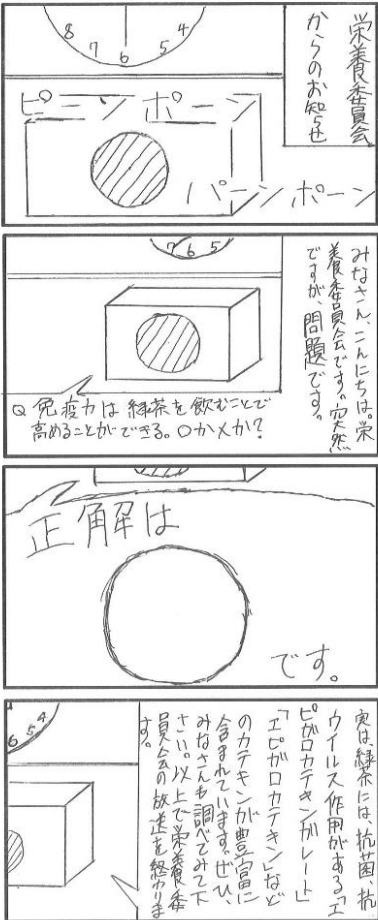 栄養委員会
からのお知らせ
8 7 6 5 4
ピーンポーン
パーンポーン
みなさん、こんにちは。栄
養委員会です。突然
ですが、問題です。
7 6 5
Q 免疫力は緑茶を飲むことで
高めることができる。〇か×か?
正解は
です。
実は、緑茶には、抗菌、抗
ウイルス作用がある「エ
ピガロカテキンガレート」
「エピガロカテキン」など
のカテキンが豊富に
含まれています。ぜひ、
みなさんも調べてみて下
さい。以上で栄養委
員会の放送を終わりま
す。
6 5 4